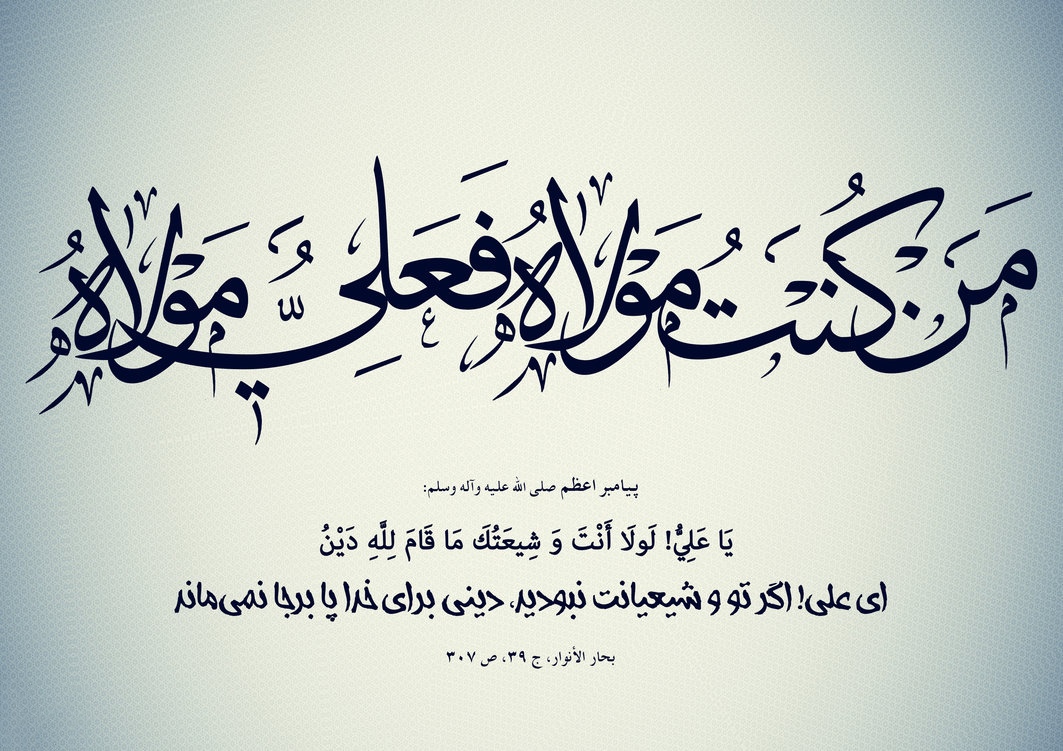 مَنْ كُنْتُ مَوْلَاهُ فَعَلِيٌّ مَوْلَاهُ
پیامبر اعظم صلی الله علیه وآله وسلم:
يَا عَلِيُّ! لَولَا أَنْتَ وَ شِيعَتُكَ مَا قَامَ لِلَّهِ دَيْنُ
ای علی! اگر تو و شیعیانت نبودید، دینی برای خدا پا برجا نمی‌ماند
بحار الأنوار، ج ۳۹، ص ۳۰۷